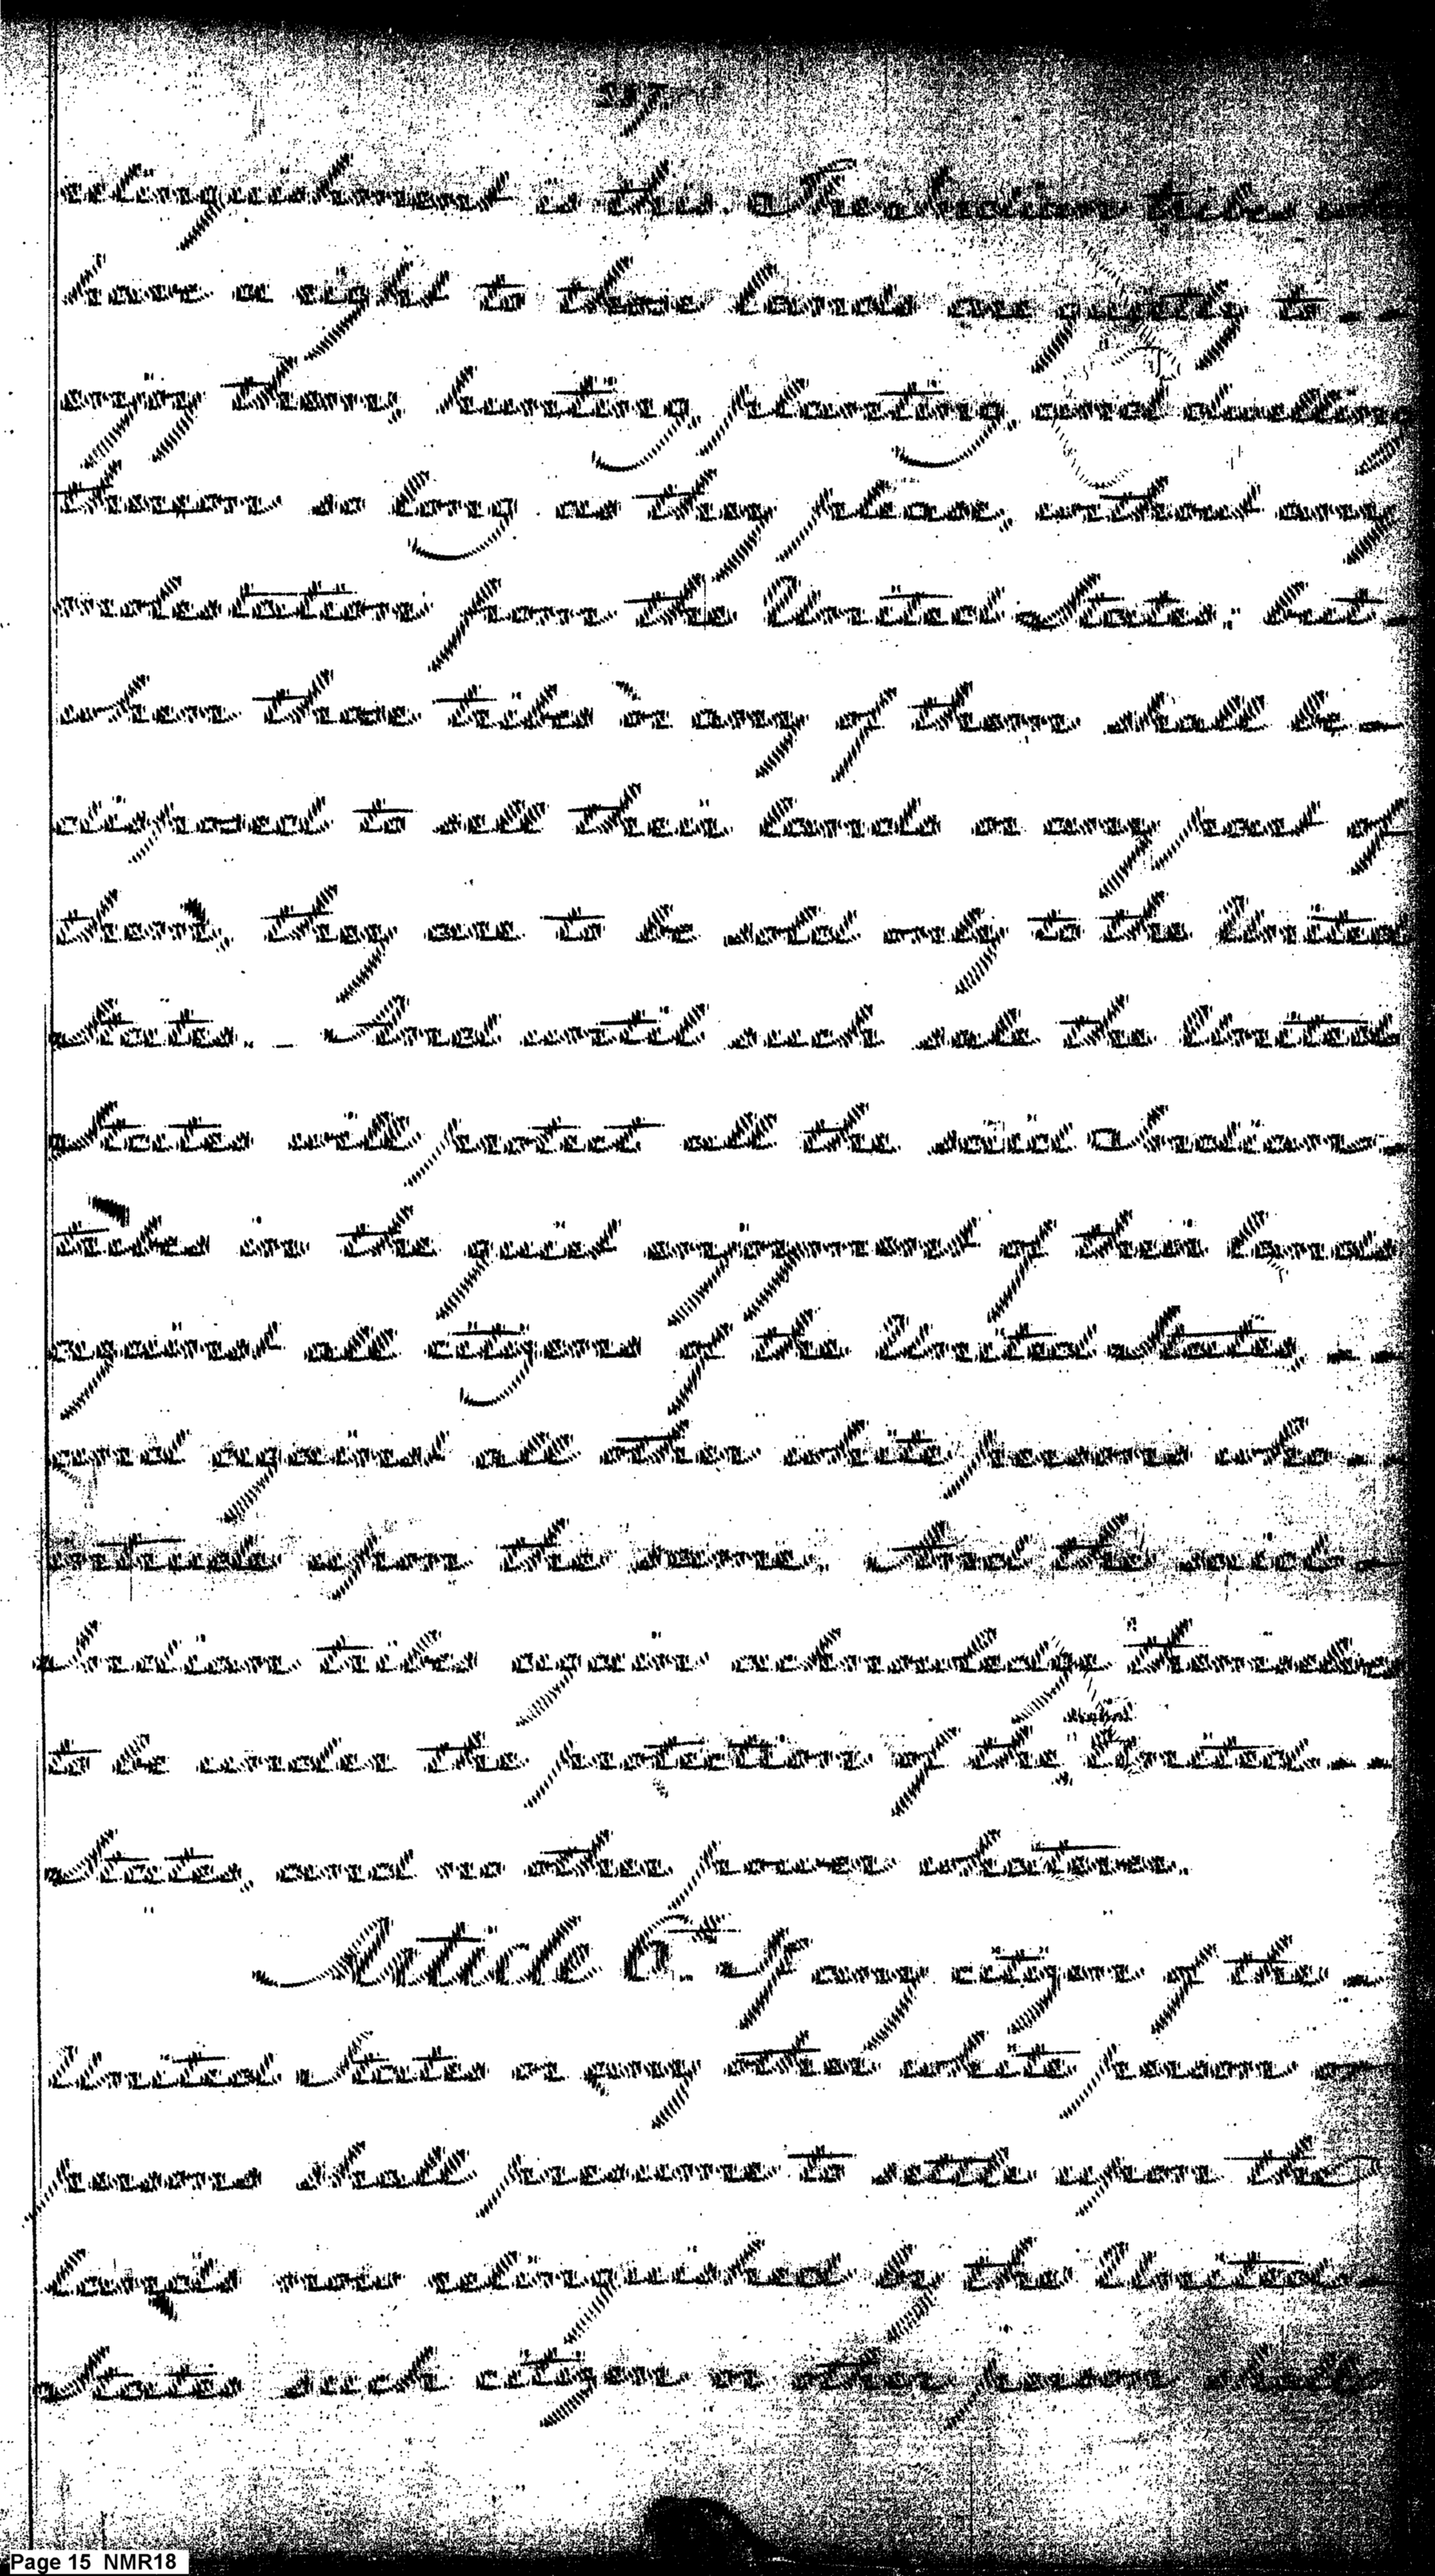 relinquishment is this. The Indian tribes who
have a right to those lands are quietly to - -
enjoy them, hunting, planting, and dwelling
thereon so long as they please, without any
molestation from the United States; but -
when those tribes or any of them shall be -
disposed to sell their lands or any part of
them, they are to be sold only to the United
States. - And until such sale the United
States will protect all the said Indian -
tribes in the quiet enjoyment of their lands
against all citizens of the United States, - -
and against all other white persons who - -
intrude upon the same. And the said -
Indian tribes again acknowledge themselves
to be under the protection of the said United - -
States, and no other power whatever.
Article 6th. If any citizen of the -
United States or any other white person or
persons shall presume to settle upon the
lands now relinquished by the United -
States such citizen or other person shall
Page 15 NMR18